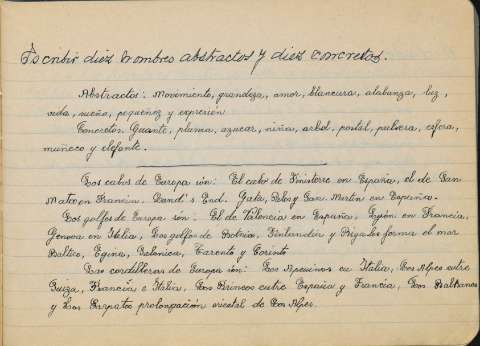 Escribir diez nombres abstractos y diez concretos.
Abstractos: Movimiento, grandeza, amor, blancura, alabanza, luz,
vida, sueño, pequeñez y expresión
Concretos. Guante, pluma, azucar, niña, arbol, postal, pulvera, esfera,
muñeco y elefante.
Los cabos de Europa son: El cabo de Finisterre en España, el de San
Mateo en Francia. Land's End. Gata, Palos y San Martin en España.
Los golfos de Europa son: El de Valencia en España, León en Francia,
Genova en Italia, Los golfos de Botnia, Finlandia y Riga los forma el mar
Baltico, Egina, Salonica, Tarento y Corinto
Las cordilleras de Europa son: Los Apeninos en Italia, Los Alpes entre
Suiza, Francia e Italia, Los Pirineos entre España y Francia, Los Balkanes
y Los Carpatos prolongación oriental de Los Alpes.